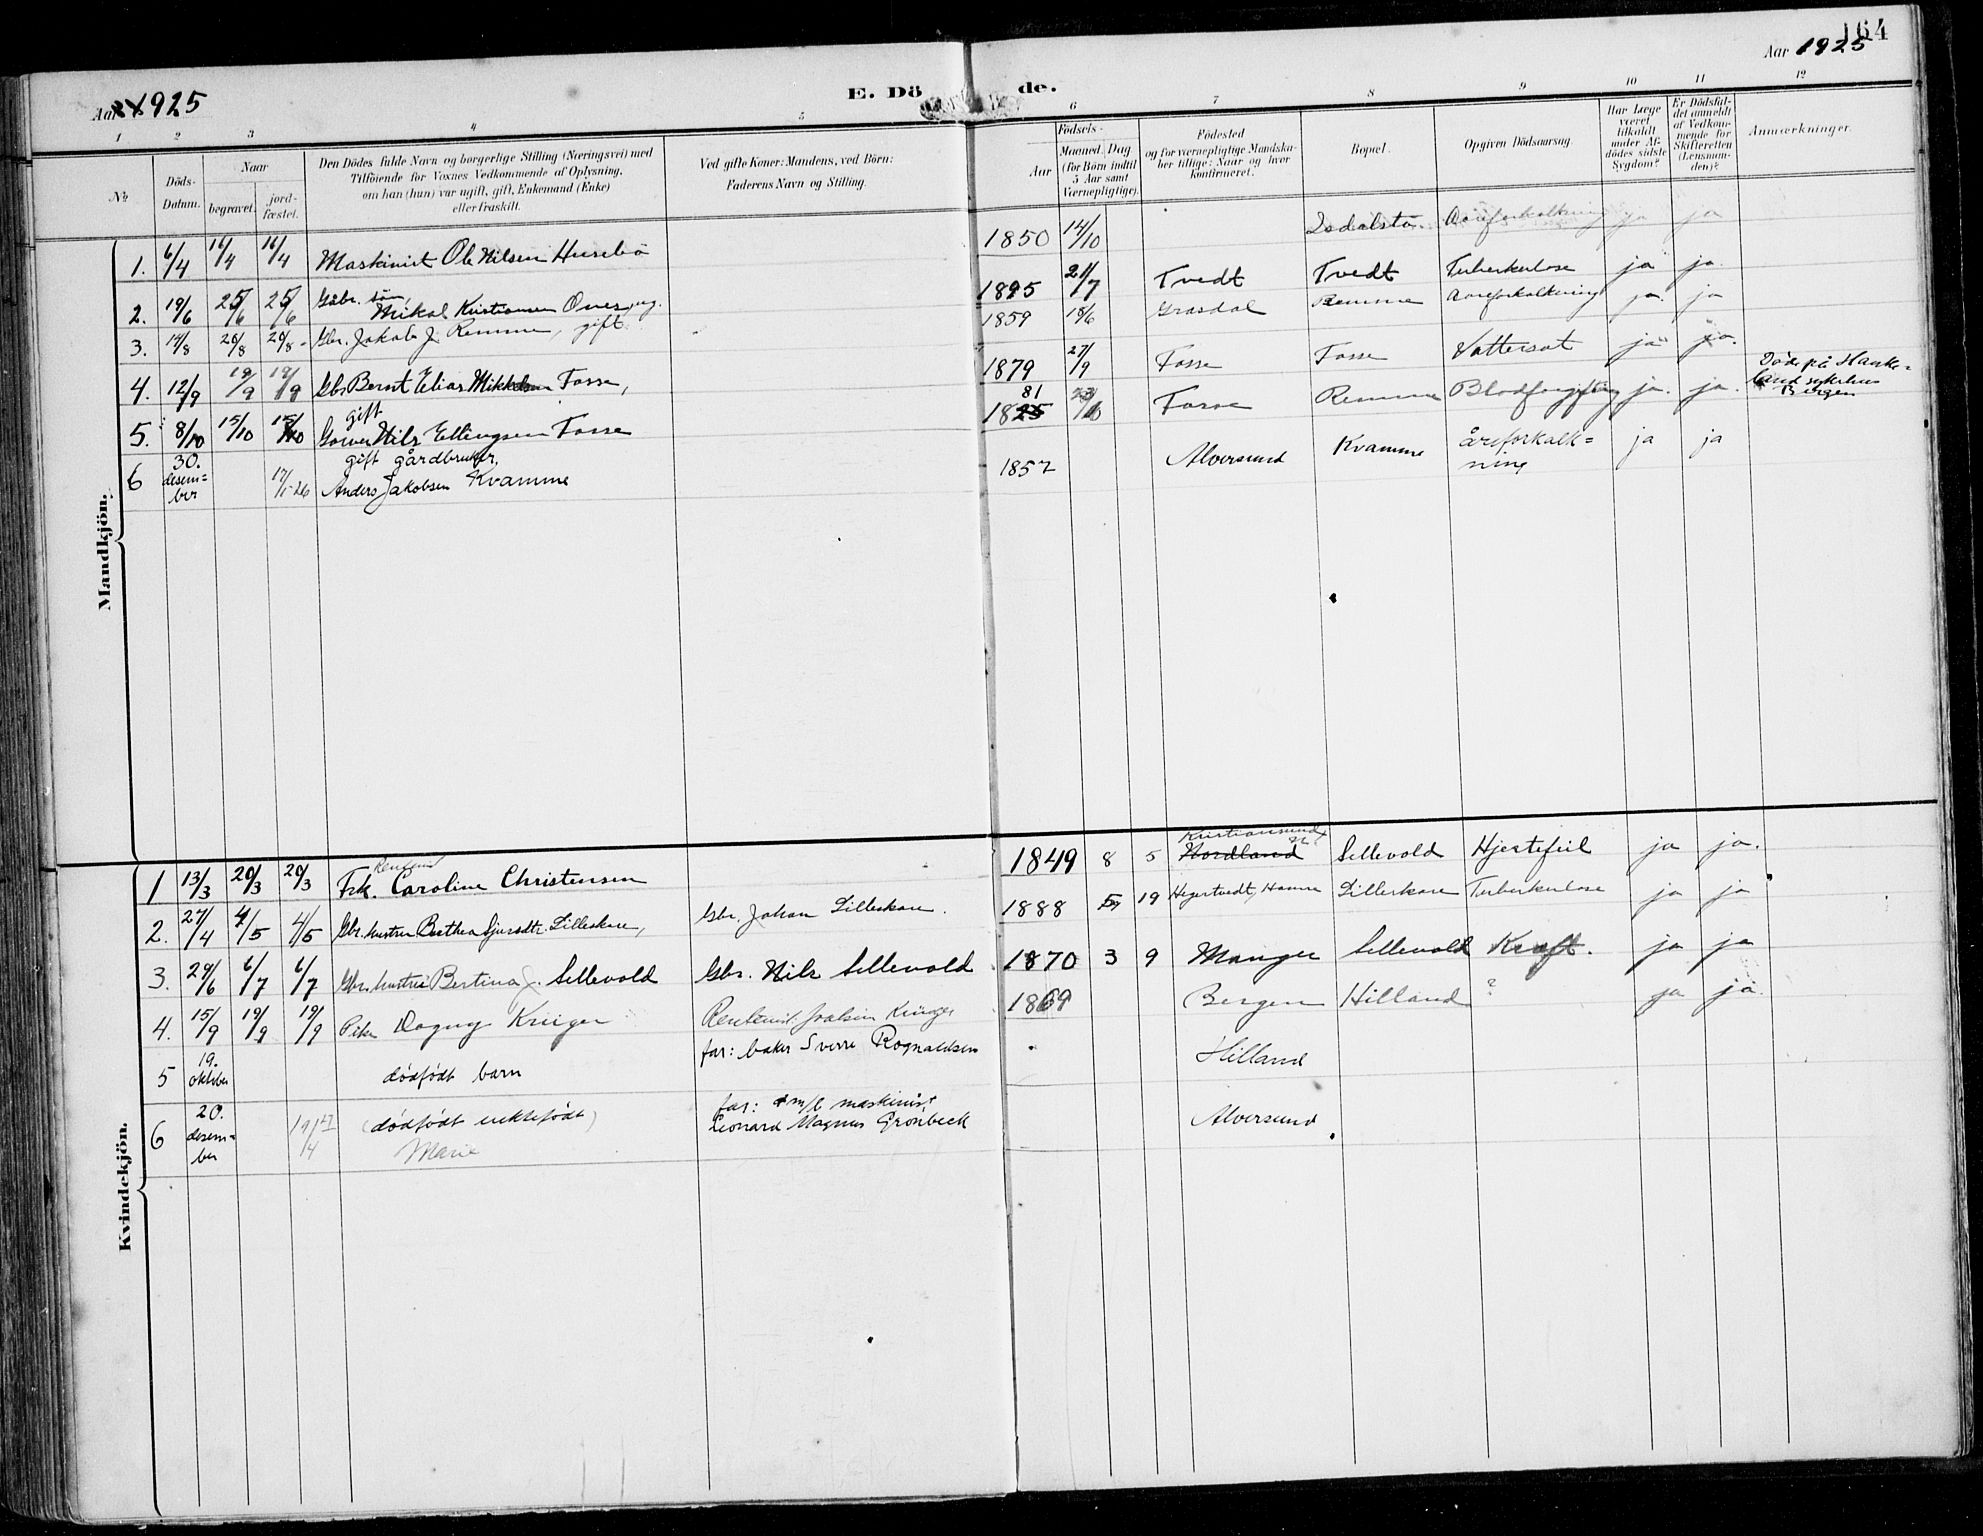 164
Aar 1925
Aar 1925
E. Dö de.
1 2 3 4 5 6 7 8 9 10 11 12
No
Döds-Datum.
Naar
begravet.
jordfæstet.
Den Dödes fulde Navn og borgerlige Stilling (Næringsvei) med
Tilföiende for Voxnes Vedkommende af Oplysning,
om han (hun) var ugift, gift, Enkemand (Enke)
eller fraskilt.
Ved gifte Koner: Mandens, ved Börn:
Faderens Navn og Stilling.
Födsels-
Aar
Maaned. Dag
(for Börn indtil
5 Aar samt
Værnepligtige).
Födested
og for værnepligtige Mandska-
ber tillige: Naar og hvor
konfirmeret.
Bopæl.
Opgiven Dödsaarsag.
Har Læge
været
tilkaldt
under Af-
dödes sidste
Sygdom?
Er Dödsfal-
det anmeldt
af Vedkom-
mende for
Skifteretten
(Lensman-
den)?
Anmærkninger.
Mandkjön.
1. 6/4 16/4 16/4 Maskinist Ole Nilsen Husebö 1850 14/10 Isdalstö Aareforkalkning ja ja
2. 19/6 25/6 25/6 Gdbr. sön Mikal Kristiansen 1895 21/7 Tvedt Tvedt Tuberkulose ja ja
3. 14/8 20/8 20/8 Gbr. Jakob J. Remme, gift. 1859 18/6 Grasdal Remme Aareforkalkning ja ja
4. 12/9 19/9 19/9 Gbr Bernt Elias Mikkelsen Fosse, gift 1879 27/9 Fosse Fosse Vattersot ja ja
5. 8/10 15/10 15/10 Nils Ellingsen Fosse 1881 Fosse Remme Blodforgiftning ja ja Död på Hauke-
land sykehus
Bergen
6 30. desem-
ber 17/1-26 gift gårdbruker,
Anders Jakobsen Kvamme 1857 Alversund Kvamme årsforkalk-
ning ja ja
Kvindekjön.
1 13/3 20/3 20/3 Frk. Caroline Christensen 1849 8 5 Nordland Kristiansund N. Sellevold Hjertefeil ja ja.
2. 27/4 4/5 4/5 Gbr. hustru Berthea Sjursdtr. Lilleskare, Gbr. Johan Lilleskare. 1888 19 Hegertvedt, Hamre Lilleskare Tuberkulose ja ja
3. 29/6 6/7 6/7 Gbr. hustru Bertina J. Sellevold Gbr. Nils Sellevold 1870 3 9 Manger Sellevold Kræft. ja ja
4. 15/9 19/9 19/9 Pike Dagny Krüger Joakim Krüger 1869 Bergen Hilland ? ja ja
5 19.
oktober dödfödt barn far: baker Sverre Rognaldsen Hilland
6 20.
desem-
ber (dödfödt ektefödt)
Marie far: m/b maskinist
Leonard Magnus Grönbeck Alversund